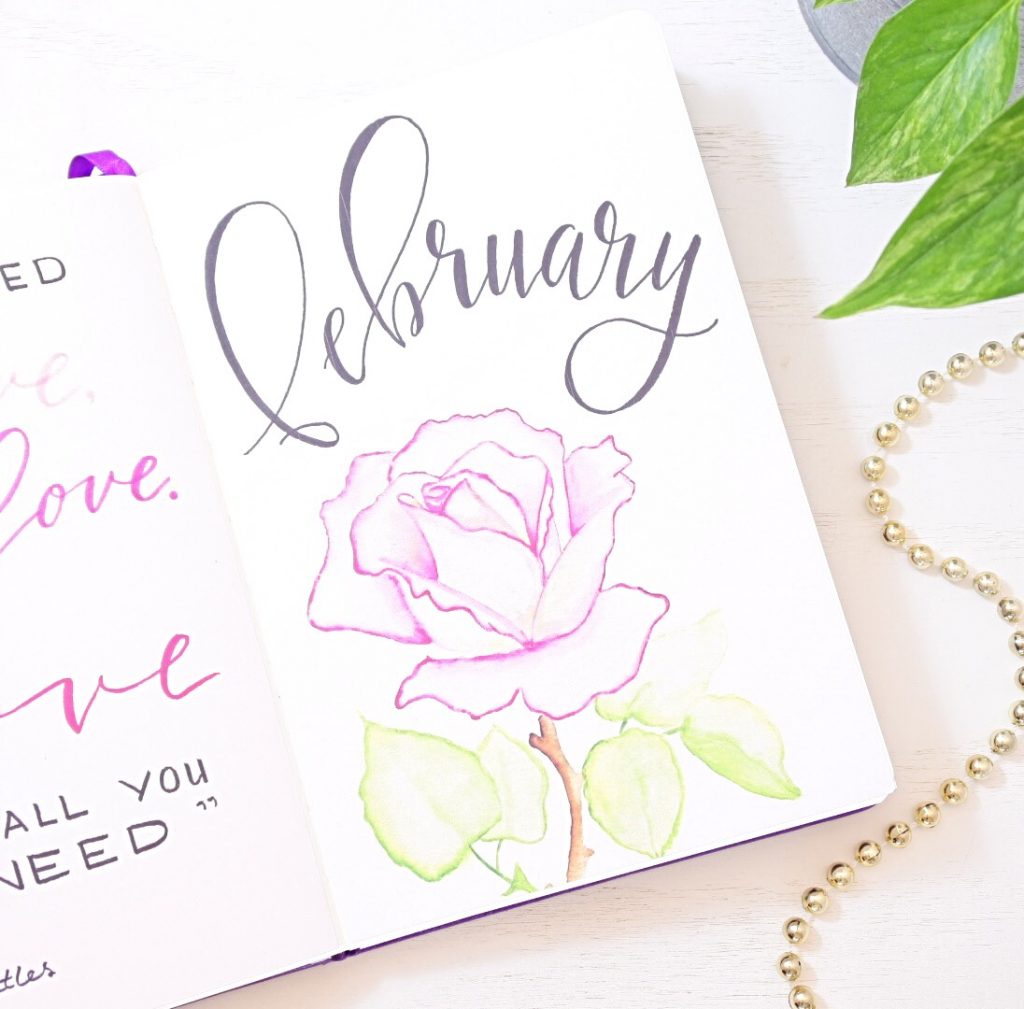 ED
ve.
love.
ve
ALL YOU
NEED”
tles
February